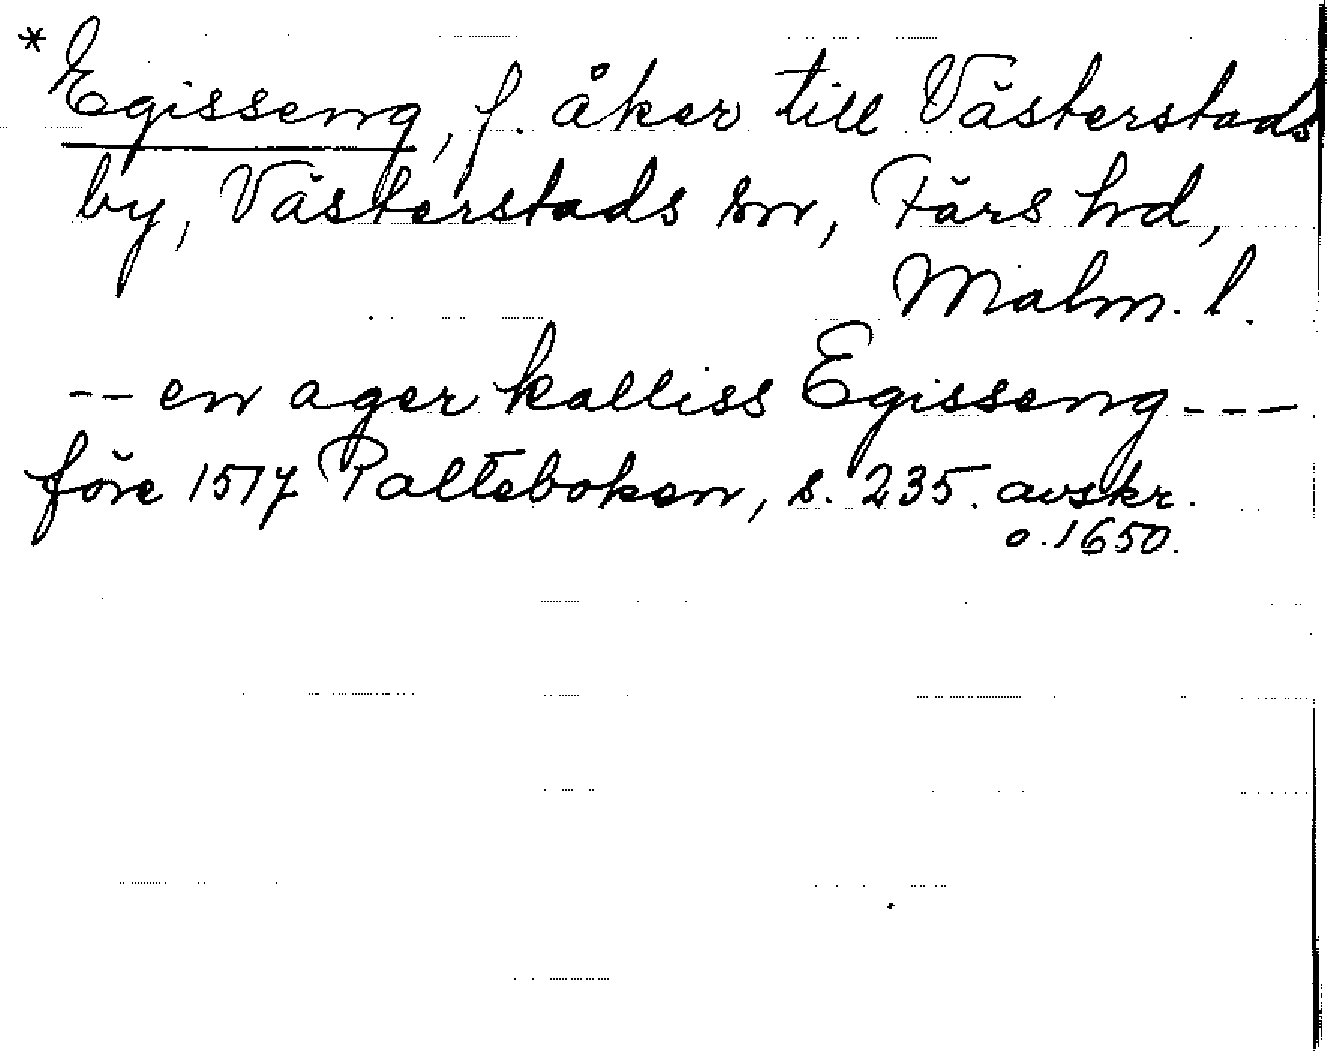 * Egisseng, f. åker till Västerstads
by, Västerstads sn, Färs hd,
Malm. l.
-- en ager kalliss Egisseng ---
före 1517 Palteboken, s. 235. avskr.
o. 1650.